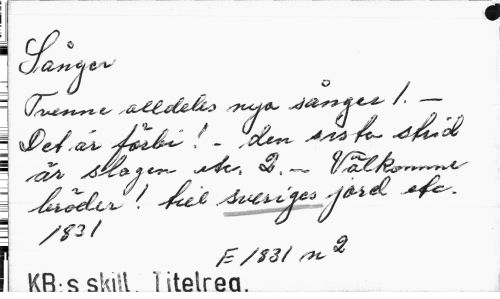 Sånger
Tvenne alldeles nya sånger 1. —
Det är förbi! - den sista strid
är slagen etc. 2. — Välkomne
bröder! till sveriges jord etc.
1831
E 1831 n 2
KB:s skill. Titelreg.